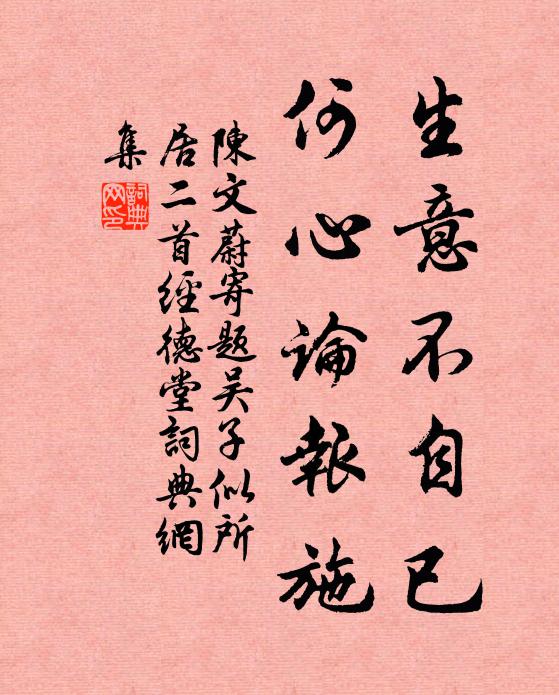 生意不自已
何心論報施
陳文蔚寄題吴子似所
居二首經德堂詞典網
集
詞典網印